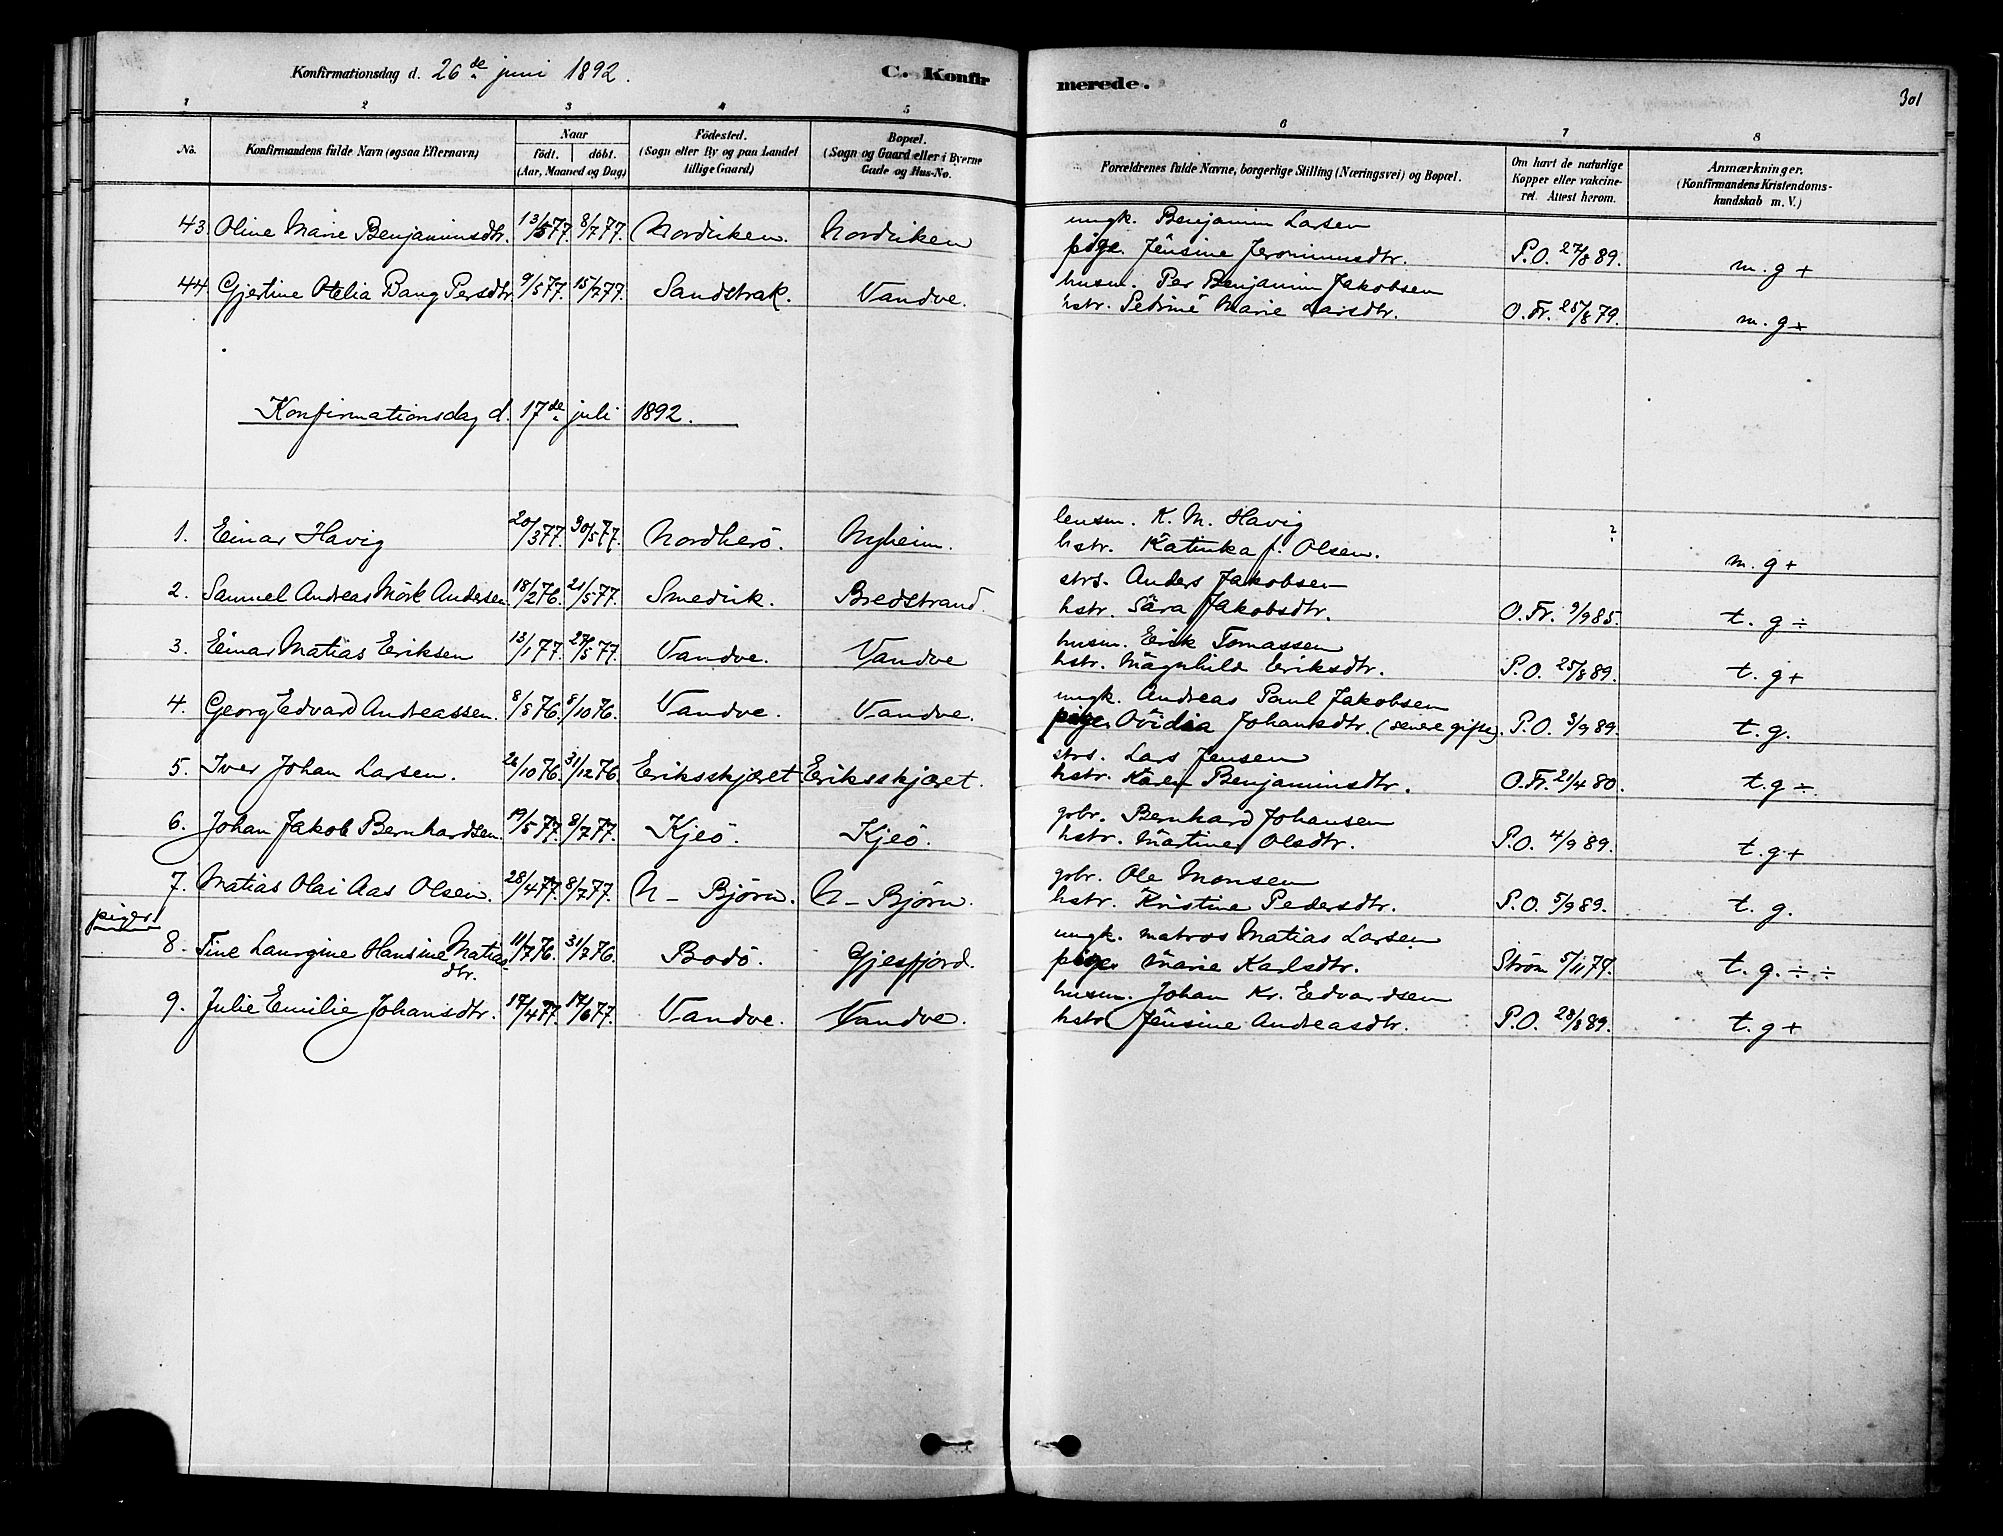 Konfirmationsdag d. 26de juni 1892. C. Konfirmerede. 301
1 2 3 4 5 6 7 8
No. Konfirmandens fulde Navn (ogsaa Efternavn) Naar födt. döbt. (Aar, Maaned og Dag) Födested. (Sogn eller By og paa Landet tillige Gaard) Bopæl. (Sogn og Gaard eller i Byerne Gade og Hus-No. Forældrenes fulde Navne, borgerlige Stilling (Næringsvei) og Bopæl. Om havt de naturlige Kopper eller vakcineret. Attest herom. Anmærkninger. (Konfirmandens Kristendomskundskab m. V.)
43 Oline Marie Benjaminsdtr. 13/577. 8/777. Nordviken. Nordviken ungk. Benjamin Larsen
pige Jensine Jeronimusdtr. P.O. 27/889. m. g +
44 Gjertine Otelia Bang Persdtr 9/577. 15/777. Sandstrak. Vandve. husm. Per Benjamin Jakobsen
hstr. Petrine Marie Larsdtr. O. Fr. 25/879. m. g +
Konfirmationsdag d. 17de juli 1892.
1. Einar Havig 20/377. 30/577. Nordherö. Nyheim. lensm. K. M. Havig
hstr. Katinka f. Olsen. ? m. g +
2. Samuel Andreas Mörk Andersen 18/276. 21/577. Smedvik. Bredstrand. strs. Anders Jakobsen
hstr. Sara Jakobsdtr. O. Fr. 9/985. t. g ÷
3. Einar Matias Eriksen 13/177. 27/577. Vandve. Vandve husm. Erik Tomassen
hstr. Magnhild Eriksdtr. P.O. 25/889. t. g +
4. Georg Edvard Andreassen. 8/876. 8/1076. Vandve. Vandve. ungk. Andreas Paul Jakobsen
pige Ovidia Johansdtr. (senere gifte). P.O. 3/989. t. g.
5. Iver Johan Larsen. 26/1076. 31/1276. Eriksskjæret Eriksskjæret. strs. Lars Jensen
hstr. Karen Benjaminsdtr. O. Fr. 21/480. t. g ÷.
6. Johan Jakob Bernhardsen. 19/577. 8/777. Kjeö. Kjeö. gbr. Bernhard Johansen
hstr. Martine Olsdtr. P.O. 4/989. t. g +
7. Matias Olai Aas Olsen. 28/477. 8/777. N - Björn. N - Björn. gbr. Ole Monsen
hstr. Kristine Pedersdtr. P.O. 5/989. t. g.
piger
8. Tine Laurgine Hansine Matiasdtr. 11/776. 31/776. Bodö. Gjesfjord. ungk. matros Matias Larsen
pige Marie Karlsdtr. Ström 5/1179. t. g. ÷ ÷
9. Julie Emilie Johansdtr. 17/477. 17/677. Vandve. Vandve. husm. Johan Kr. Edvardsen
hstr. Jensine Andreasdtr. P.O. 28/889. t. g +